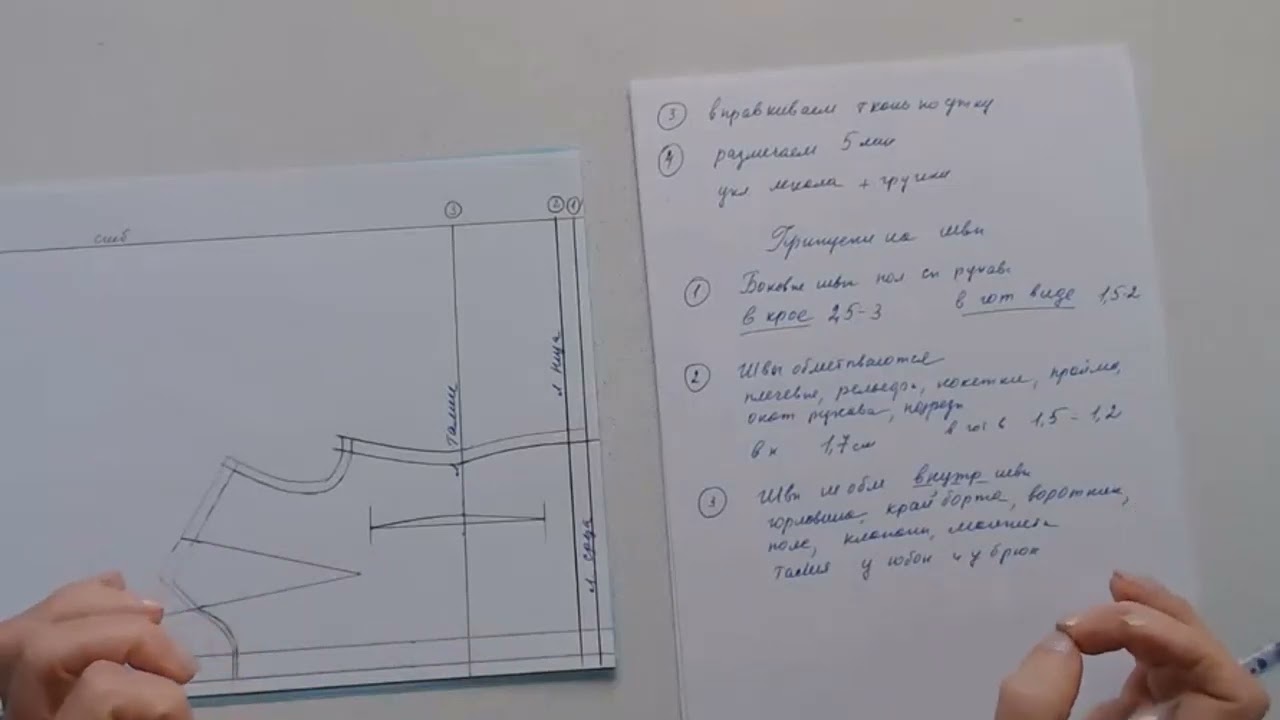 сгиб
③ ② ①
талии
л низа
л сгиба
③ вправкиваем ткань по утку
④ размечаем 5 лин
укл лекала + грузики
Припуски на швы
① Боковые швы пол сп рукав
в крое 2,5-3 в гот виде 1,5-2
② Швы обметываются
плечевые, рельефы, кокетки, пройма,
окат рукава,
в к 1,7 см в гот в 1,5 - 1,2
③ Швы не обм внутр швы
горловина, край борта, воротник,
пояс, клапаны, манжета
талия у юбок и у брюк